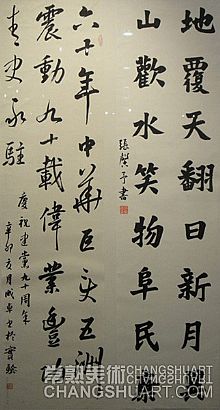 地覆天翻日新月
山歡水笑物阜民
張賢予書
六十年中華巨變五洲
震動九十載偉業豐功
青史永駐
慶祝建黨九十周年
辛卯
常熟美術
CHANGSHUART